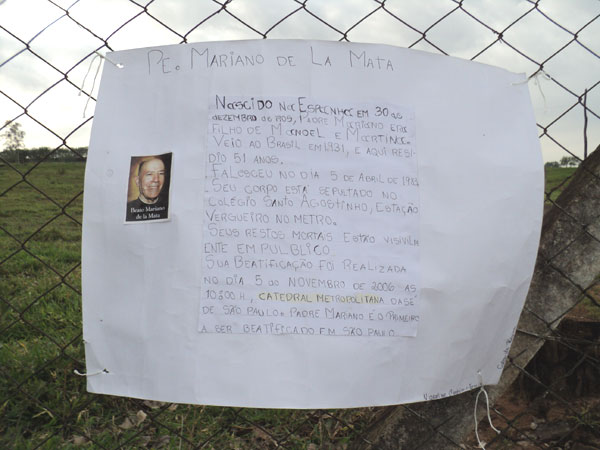 PE. MARIANO DE LA MATA
NASCIDO NA ESPANHA EM 30 DE
DEZEMBRO DE 1905, PADRE MARIANO ERA
FILHO DE MANOEL E MARTINA.
VEIO AO BRASIL EM 1931, E AQUI RESI-
DIO 51 ANOS.
FALOSCEU NO DIA 5 DE ABRIL DE 1983
SEU CORPO ESTÁ SEPULTADO NO
COLÉGIO SANTO AGOSTINHO, ESTAÇÃO
VERGUEIRO NO METRO.
SEUS RESTOS MORTAIS ESTÃO VISIVILM
ENTE EM PULBLICO.
SUA BEATIFICAÇÃO FOI REALIZADA
NO DIA 5 DO NOVEMBRO DE 2006 AS
CATEDRAL METROPOLITANA DA SÉ
DE SÃO PAULO. PADRE MARIANO É O PRIMEIRO
A SER BEATIFICADO EM SÃO PAULO
Beato Mariano
de la Mata